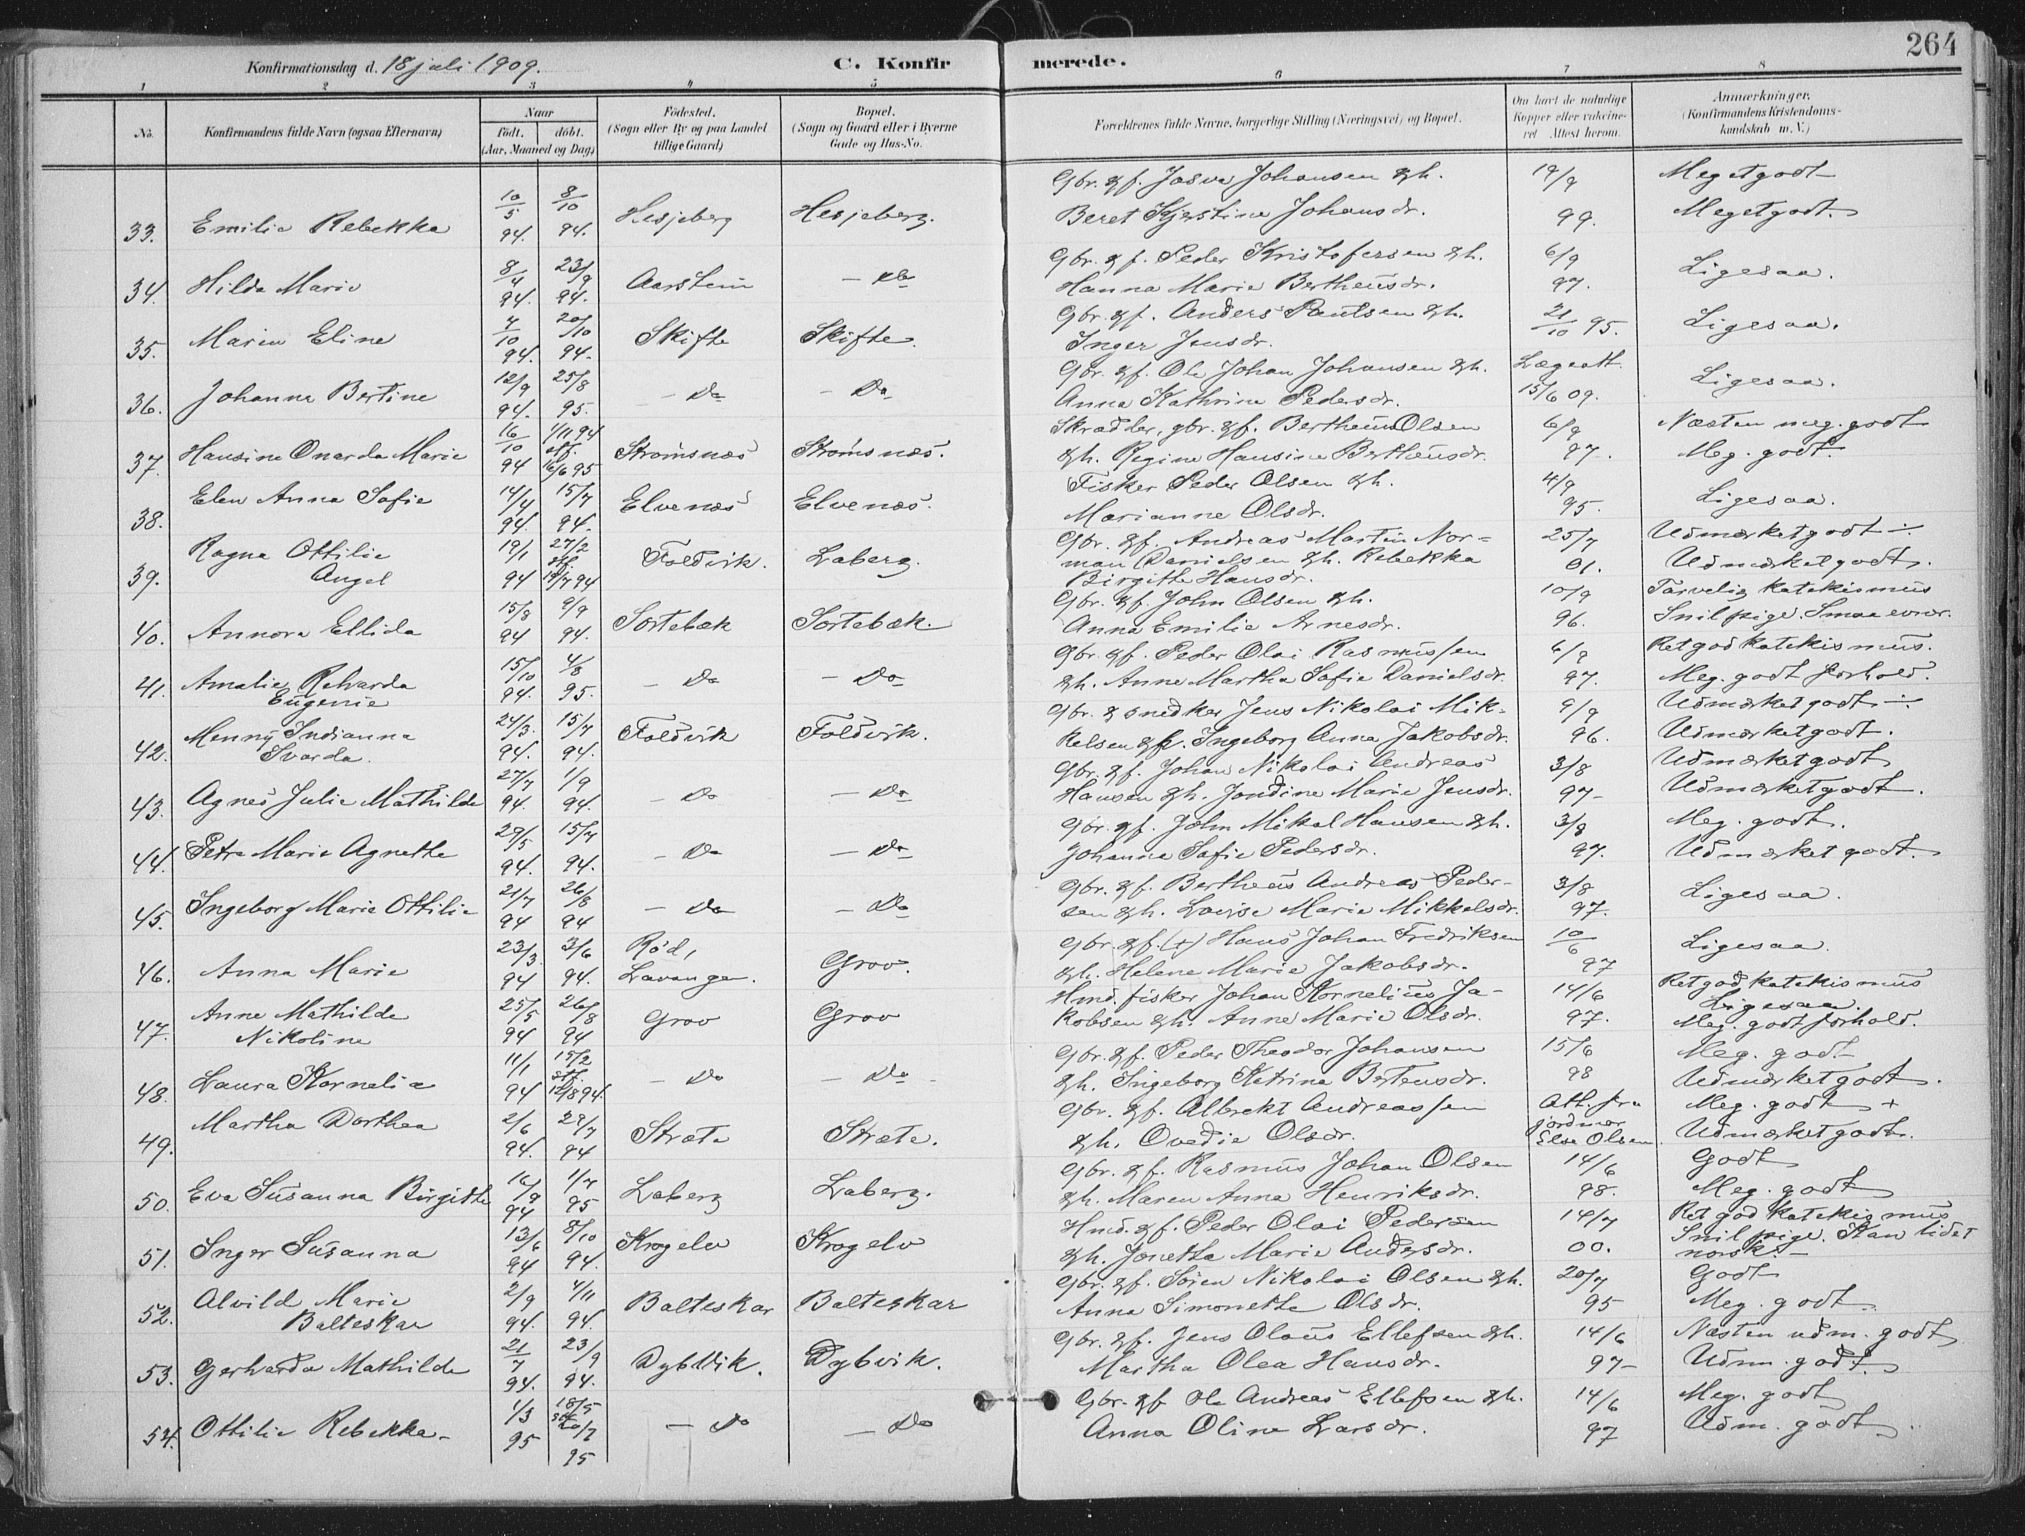 264
Konfirmationsdag d. 18 juli 1909.
C. Konfirmerede.
1 2 3 4 5 6 7 8
No.
Konfirmandens fulde Navn (ogsaa Efternavn)
Naar
födt. döbt.
(Aar, Maaned og Dag)
Födested.
(Sogn eller By og paa Landet
tillige Gaard)
Bopæl.
(Sogn og Gaard eller i Byerne
Gade og Hus-No.
Forældrenes fulde Navne, borgerlige Stilling (Næringsvei) og Bopæl.
Om havt de naturlige
Kopper eller vakcineret Attest herom.
Anmærkninger.
(Konfirmandens Kristendomskundskab m. V.)
33. Emilie Rebekka 10/5 94. 8/10 94. Hesjeberg Hesjeberg. Gbr. & f. Johansen & h. 19/9 Meget godt
Beret Kjerstine Johansdr. 99. Meget godt.
34. Hilda Marie 8/4 94. 23/9 94. Aarstein — Do Gbr. & f. Peder Kristofersen & h. 6/9 Ligesaa.
Hanna Marie Bertheusdr. 97.
35. Maren Eline 4/10 94. 20/10 94. Skifte Skifte. Gbr. & f. Anders Paulsen & h. 21/10 95. Ligesaa.
Inger Jensdr.
36. Johanna Bertine 12/9 94. 25/8 95. — Do — Do Gbr. & f. Ole Johan Johansen & h. Lægeatt. Ligesaa.
Anna Kathrine Pedersdr. 15/6 09.
37. Hansine Onarda Marie 16/10 94 1/11 94 stf. 16/6 95 Strømsnæs Strømsnæs. Skrædder, gbr. & f. Bertheus Olsen 6/9 Næsten meg. godt
& h. Regine Hansine Bertheusdr. 97. Meg. godt.
38. Elen Anna Sofie 14/4 94. 15/7 94. Elvenæs Elvenæs. Fisker Peder Olsen & h. 4/9 Ligesaa.
Marianne Olsdr. 95.
39. Ragna Ottilie 19/1 94 27/2 stf. 94 Foldvik. Laberg. Gbr. & f. Andreas Martin Nor- 25/7 Udmærket godt ÷
Angel man Danielsen & h. Rebekka 01. Udmærket godt.
Birgithe Hansdr.
40. Annora Ellida 15/8 94 9/9 94. Sortebæk Sortebæk. Gbr. & f. John Olsen & h. 10/9 Tarvelig katekismus
Anna Emilie Arnesdr. 96. Snil pige. Smaa evner.
41. Amalie Relvarda 15/10 94. 4/8 95. — Do — Do Gbr. & f. Peder Olai Rasmussen 6/9 Ret god katekismus.
Eugenie & h. Anne Martha Sofie Danielsdr. 97. Meg. godt forhold.
42. Menny Indianna 24/3. 94. 15/7 94. Foldvik Foldvik. Gbr. & snedker Jens Nikolai Mik- 9/9 Udmærket godt ÷
Svarda. kelsen & h. Ingeborg Anna Jakobsdr. 96. Udmærket godt.
43. Agnes Julie Mathilde 27/7 94. 1/9 94. — Do — Do Gbr. & f. Johan Nikolai Andreas 3/8 Udmærket godt
Hansen & h. Jondine Marie Jensdr. 97- Udmærket godt.
44. Petra Marie Agnethe 29/5 94. 15/7 94. — Do — Do Gbr. & f. John Mikal Hansen & h. 3/8 Meg. godt.
Johanna Sofie Pedersdr. 97. Udmærket godt.
45. Ingeborg Marie Ottilie 21/7 94 26/8 94 — Do — Do Gbr. & f. Bertheus Andreas Peder- 3/8 Ligesaa.
sen & h. Lovise Marie Mikkelsdr. 97.
46. Anna Marie 23/3. 94 3/6 94. Rød, Grov. Gbr. & f. (+) Hans Johan Fredriksen 10/6 Ligesaa.
Lavangen. & h. Helene Marie Jakobsdr. 97
47. Anne Mathilde 25/5 94 26/8 94 Grov Grov Hmd. fisker Johan Kornelius Ja- 14/6 Ret god katekismus
Ligesaa.
Nikoline kobsen & h. Anne Marie Olsdr. 97. Meg. godt forhold.
48. Laura Kornelia 11/1 94 15/2 stf. 12/8 94. — Do — Do Gbr. & f. Peder Theodor Johansen 15/6 Meg. godt
& h. Ingeborg Katrina Bertensdr. 98 Udmærket godt.
49. Martha Dorthea 2/6 94. 29/7 94 Stræte Stræte. Gbr. & f. Albrekt Andreassen Att. fra Meg. godt +
& h. Ovedie Olsdr. jordmor Udmærket godt.
Olsen
50. Eva Susanna Birgitte 94 1/7 95 Laberg Laberg. Gbr. & f. Rasmus Johan Olsen 14/6 Godt
& h. Maren Anna Henriksdr. 98. Meg. godt
51. Inger Susanna 13/6 94 8/10 94. Krogelv Krogelv Hmd. & f. Peder Olai Pedersen 14/7 Ret god katekismus
& h. Jonetta Marie Andersdr. 00. Snil pige. Kan lidet
norsk. —
52. Alvild Marie 2/9 94. 4/11 94. Balteskar Balteskar Gbr. & f. Søren Nikolai Olsen & h. 20/7 Godt
Balteskar Anna Simonette Olsdr. 95 Meg. godt.
53. Gerharda Mathilde 21/7 94. 23/9 94. Dybvik. Dybvik. Gbr. & f. Jens Olaus Ellefsen & h. 14/6 Næsten udm. godt
Martha Olea Hansdr. 97- Udm. godt.
54. Ottilie Rebekka 1/3 95 18/5 stf. 20/7 95 — Do — Do Gbr. & f. Ole Andreas Ellefsen & h. 14/6 Meg. godt
Anna Oline Larsdr. 97 Udm. godt.